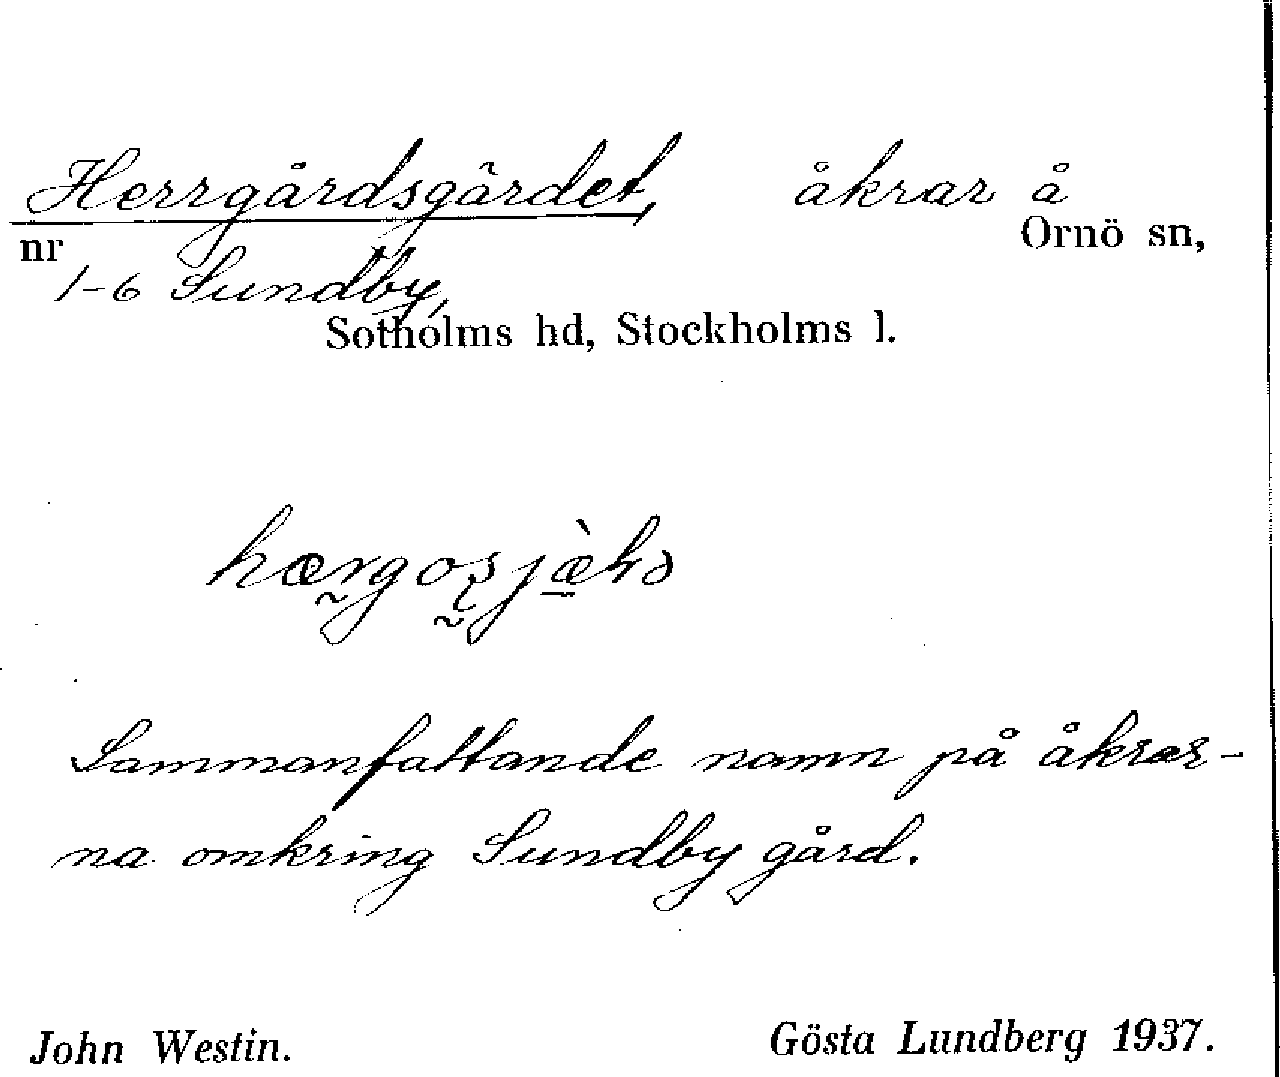 Herrgårdsgärdet, åkrar å
nr Ornö sn,
1-6 Sundby,
Sotholms hd, Stockholms l.
Sammanfattande namn på åkrar-
na omkring Sundby gård.
John Westin. Gösta Lundberg 1937.